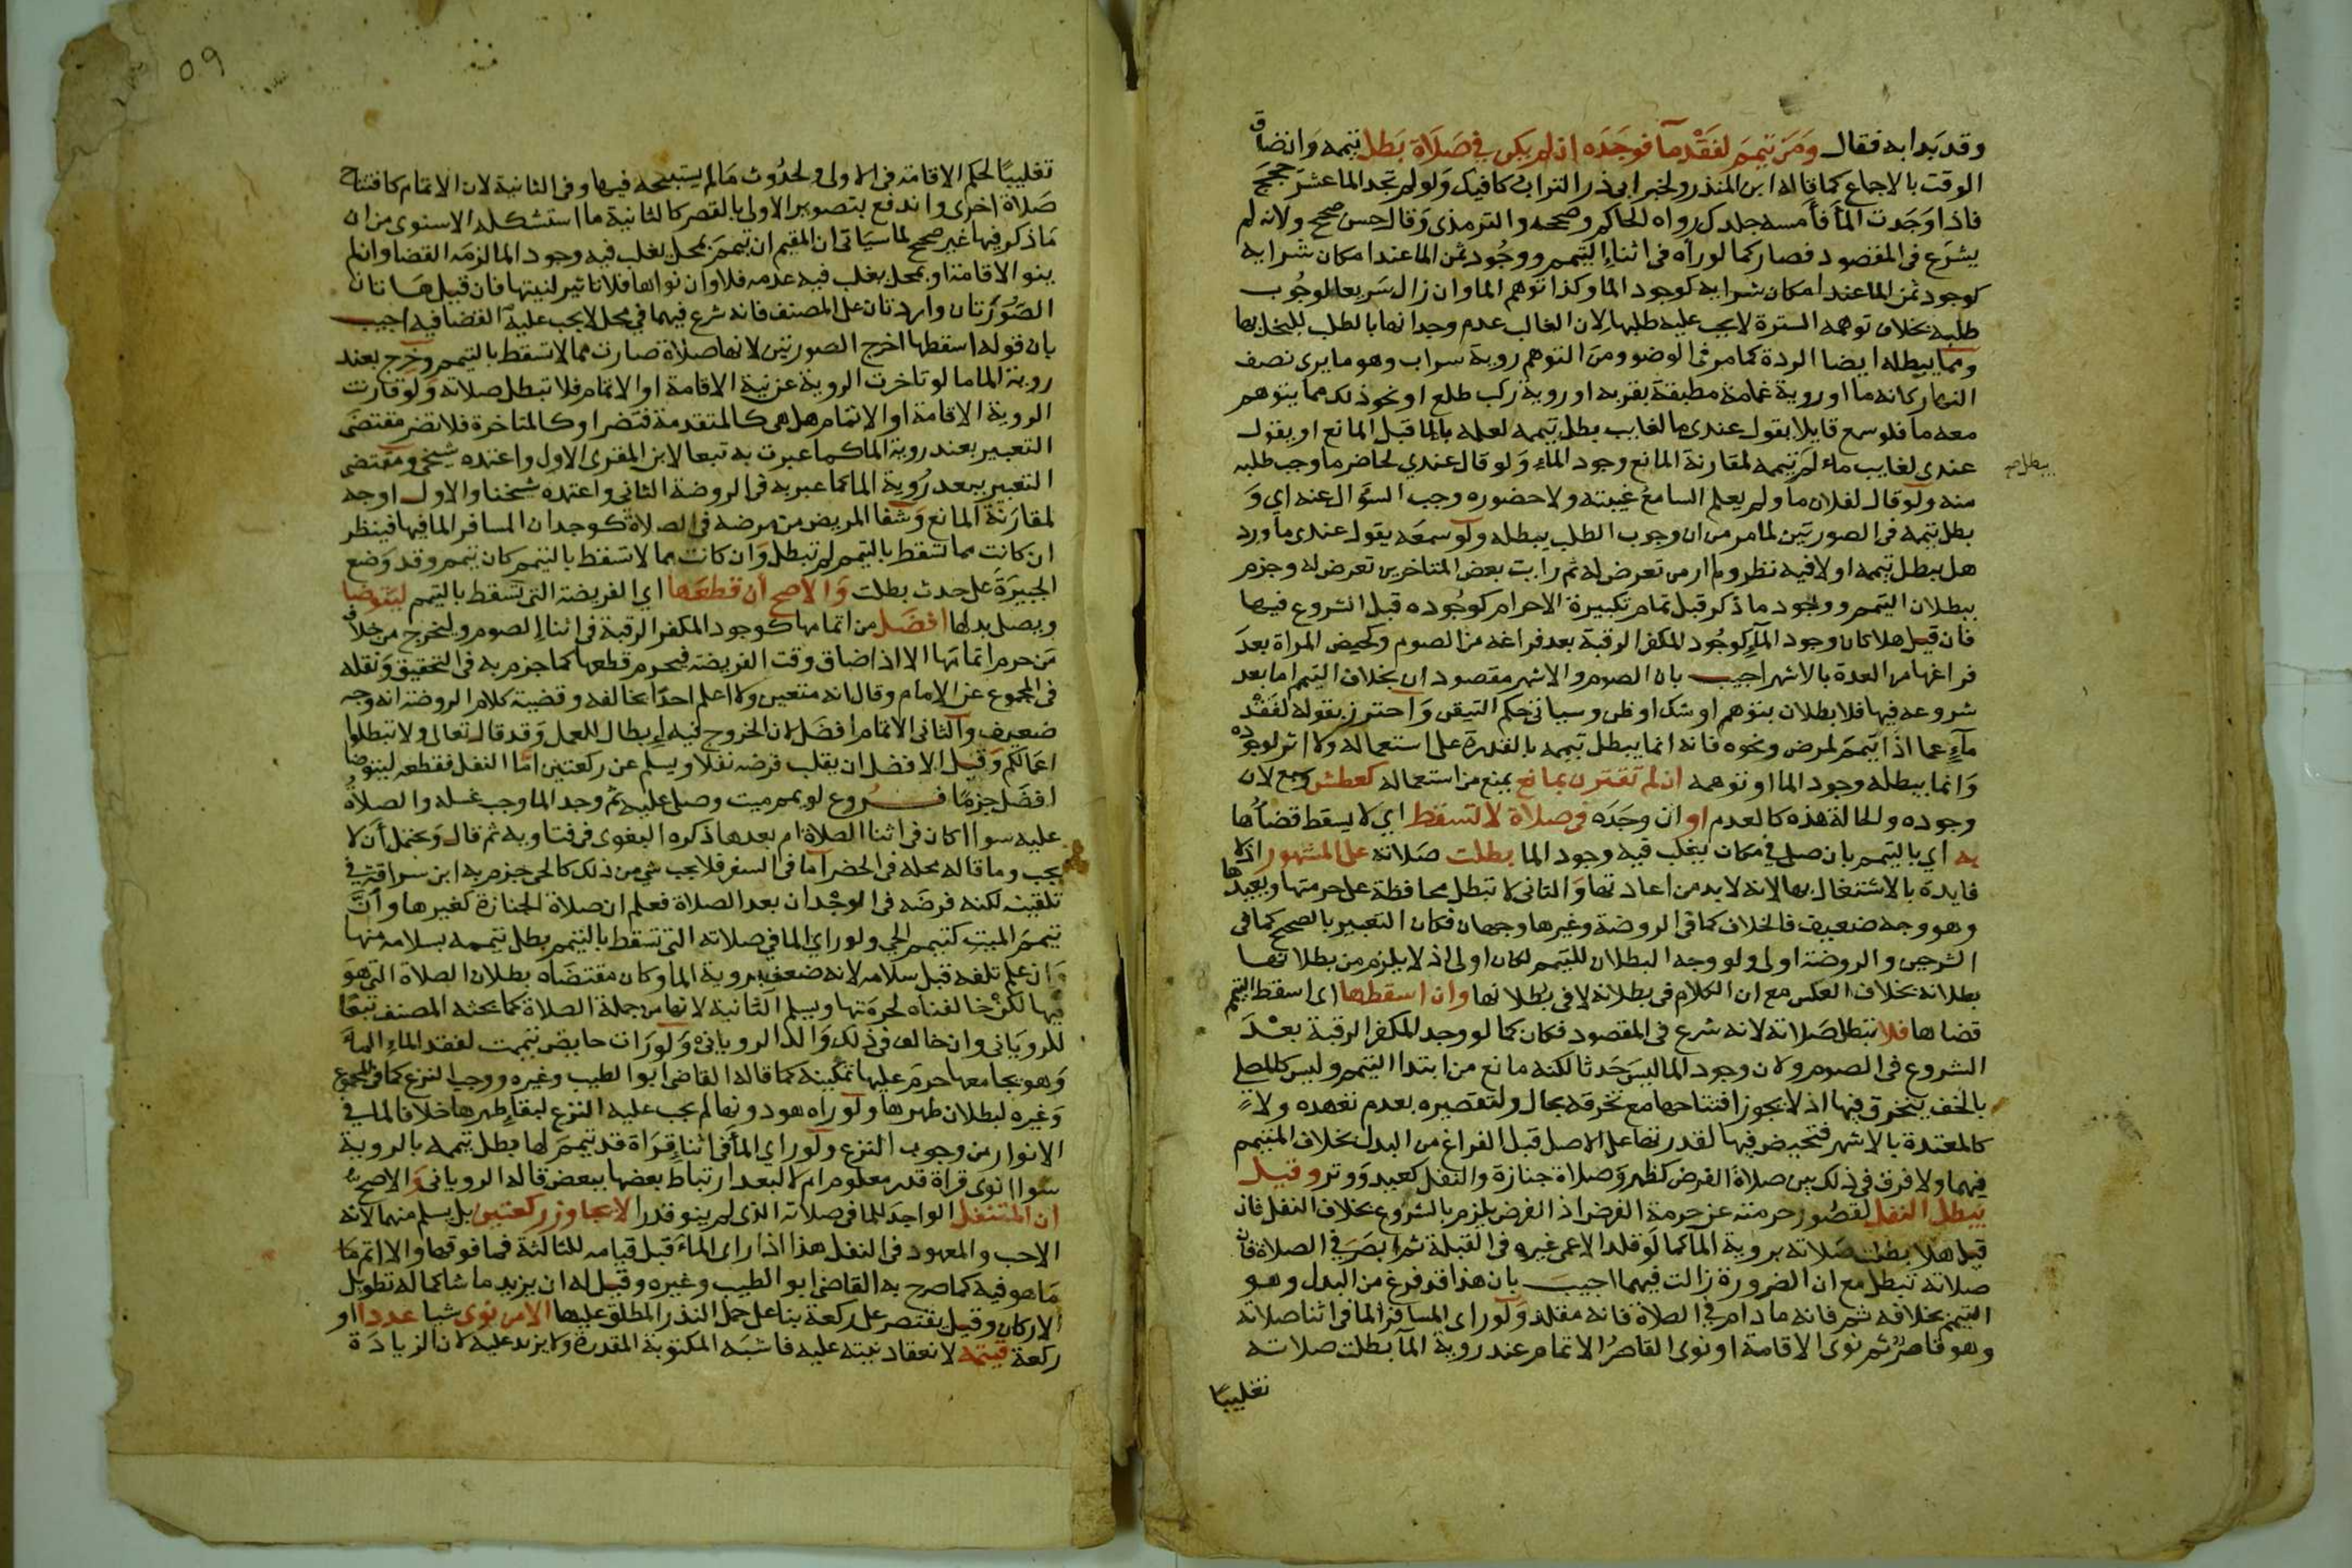 وقد بدا به فقال وَمَن تيمم لفَقْد مآ فوَجَدَه ان لم يكن في صَلَاة بَطل تيممه وَان ضاق
الوقت بالاجماع كما قاله ابن المنذر ولخبر ابى ذر التراب كافيك وَلو لم تجد الما عشر حجج
فاذا وَجَدت المآ فأمسه جلدك رواه الحاكم وصححه والترمذى وَقال حسن صحيح ولانه لم
يشرَع فى المقصود فصار كما لو رآه فى اثناء التيمم ووجُود ثمن الما عند امكان شرايه
كوجود ثمن الما عند امكان شرايه كوجود الما وكذا توهم الما وان زال سَريعا لوجُوب
طلبه بخلاف توهمه السترة لا يجب عليه طلبها لان الغالب عدم وجدانها بالطلب للبخل بها
ومما يبطله ايضا الردة كما مر فى الوضو ومن التوهم روية سراب وهو ما يرى نصف
النهار كانه ما او روية غمامة مطبقة بقربه او روية ركب طلع او نحو ذلك مما يتوهم
معه ما فلو سمع قايلا يقول عندى ما لغايب بطل تيممه لعلمه بالما قبل المانع او يقول
عندى لغايب ماء لم تيممه لمقارنة المانع وجود الماء وَلو قال عندي لحاضر ما وجب طلبه
يبطل صح
منه ولو قال لفلان ما ولم يعلم السامع غيبته ولا حضوره وجب السؤال عنه اي وَ
بطل تيممه فى الصورتين لما مر من ان وجوب الطلب يبطله ولو سمعه يقول عندى ما ورد
هل يبطل تيممه اولا فيه نظر ولم ار من تعرض له ثم رايت بعض المتاخرين تعرض له وجزم
ببطلان التيمم ووجود ما ذكر قبل تمام تكبيرة الاحرام كوجُوده قبل الشروع فيها
فان قيل هلا كان وجود المآء كوجُود المكفر الرقبة بعد فراغه من الصوم وكحيض المراة بعدَ
فراغها من العدة بالاشهر اجيب بان الصوم والاشهر مقصودان بخلاف التيمم اما بعد
شروعه فيها فلا بطلان بتوهم او شك او ظن وسياتى حكم التيقن وَاحترز بقوله لفَقْد
مآءٍ عما اذا تيمم لمرض ونحوه فانه انما يبطل تيممه بالقدرة على استعماله ولا اثر لوجوده
وَانما يبطله وجود الما او توهمه ان لم تقترن بمانع يمنع من استعماله كعطش وسبع لان
وجوده والحالة هذه كالعدم او ان وجَدَه فى صلاة لا تسقط اي لا يسقط قضاؤها
به اي بالتيمم بان صلى في مكان يغلب فيه وجود الما بطلت صَلاته على المشهور اذ لا
فايدة بالاشتغال بها لانه لا بد من اعادتها وَالثانى لا تبطل محافظة على حرمتها ويعيدها
وهو وجه ضعيف فالخلاف كما فى الروضة وغيرها وجهان فكان التعبير بالصحيح كما فى
الشرحين والروضة اولى ولو وجه البطلان للتيمم لكان اولى اذ لا يلزم من بطلانها
بطلانه بخلاف العكس مع ان الكلام فى بطلانه لا فى بطلانها وان اسقطها اى اسقط التيمم
قضاها فلا تبطل صَلاته لانه شرع فى المقصود فكان كما لو وجد المكفر الرقبة بعْدَ
الشروع فى الصوم ولان وجود الما ليسَ حَدثا لكنه مانع من ابتدا التيمم وليس كالمصلي
بالخف يتخرق فيها اذ لا يجوز افتتاحها مع تخرقه بحال ولتقصيره بعدم تعهده ولا
كالمعتدة بالاشهر فتحيض فيها لقدرتها على الاصل قبل الفراغ من البدل بخلاف المتيمم
فيهما ولا فرق فى ذلك بين صلاة الفرض كظهر وَصلاة جنازة والنفل كعيد وَوتر وقيل
يبطل النفل لقصُور حرمته عن حرمة الفرض اذ الفرض يلزم بالشروع بخلاف النفل فان
قيل هلا بطلت صَلاته بروية المآ كما لو قلد الاعمى غيره فى القبلة ثم ابصَرَ في الصلاة فان
صلاته تبطل مع ان الضرورة زالت فيهما اجيبَ بان هذا قد فرغ من البدل وهو
التيمم بخلافه ثم فانه ما دام في الصلاة فانه مقلد وَلو راى المسافر الما فى اثنا صلاته
وهو قاصرٌ ثم نوَى الاقامة او نوى القاصرُ الاتمام عند روية المآ بطلت صلاته
تغليبًا
٥٩
تغليبًا لحكم الاقامة فى الاولى ولحدُوث مَا لم يستبيحه فيها وفى الثانية لان الاتمام كافتتاح
صَلاة اخرى واندفع بتصوير الاولى بالقصر كالثانية ما استشكله الاسنوى من ان
مَا ذكر فيها غير صحيح لما سيَاتى ان المقيم ان تيممَ بمحل يغلب فيه وجود الما لزمه القضا وان لم
ينو الاقامة او بمحل يغلب فيه عدمه فلا وان نواها فلا تاثير لنيتها فان قيل هَاتان
الصُّورَتان واردتان على المصنف فانه شرع فيهما في محل لا يجب عليه القضا فيه اجيب
بان قوله اسقطها اخرج الصورتين لانها صلاة صارت مما لا تسقط بالتيمم وخرج بعند
روية الما ما لو تاخرت الروية عن نية الاقامة او الاتمام فلا تبطل صلاته وَلو قارنت
الروية الاقامة او الاتمام هل هى كالمتقدمة فتضر او كالمتاخرة فلا تضر مقتضى
التعبير بعند روية الما كما عبرت به تبعا لابن المقرى الاول واعتمده شيخى ومقتضى
التعبير ببعد رُوية الما كما عبر به فى الروضة الثانى واعتمده شيخنا والاول اوجه
لمقارَنة المانع وَشفا المريض من مرضه فى الصلاة كوجدان المسافر الما فيها فينظر
ان كانت مما تسقط بالتيمم لم تبطل وَان كانت مما لا تسقط بالتيمم كان تيمم وقد وَضع
الجبيرَة على حدث بطلت وَالاصح ان قطعَها اي الفريضة التى تسقط بالتيمم ليتوضا
ويصلى بدلها افضَل من اتمامها كوجود المكفر الرقبة فى اثنا الصوم وليخرج من خلاف
مَن حرم اتمامها الا اذا ضاق وقت الفريضة فيحرم قطعها كما جزم به فى التحقيق وَنقله
فى المجموع عن الامام وقال انه متعين ولا اعلم احدًا يخالفه وقضية كلام الروضة انه وجه
ضعيف وَالثانى الاتمام افضَل لان الخروج فيه ابطال للعمل وَقد قال تعالى ولا تبطلوا
اعمَالكم وَقيل الافضل ان يقلب فرضه نفلا ويسلم عن ركعتين امَّا النفل فقطعه ليتوضا
افضَل جزمًا فــروع لو يمم ميت وصلى عليه ثم وجد الما وجب غسله والصلاةُ
عليه سوا اكان فى اثنا الصلاة ام بعدها ذكره البغوى فى فتاويه ثم قال وَيحتمل أن لا
يجب وما قاله محله فى الحضر امَا فى السفر فلا يجب شي من ذلك كالحى جزم به ابن سراقة في
تلقينه لكنه فرضَه فى الوجْدان بعد الصلاة فعلم ان صلاة الجنازة كغيرها وَأنَّ
تيممَ الميتِ كتيمم الحي ولو راى الما في صلاته التى تسقط بالتيمم بطل تيممه بسلامه منها
وَان علم تلفه قبل سلامه لانه ضعف بروية الما وكان مقتضَاه بطلان الصلاة التى هوَ
فيها لكن خالفناه لحرمَتها ويسلم الثانية لانها من جملة الصلاة كما بحثه المصنف تبعًا
للرويَانى وان خالف فى ذلك وَالدُ الرويانى وَلو رَات حايض تيممت لفقد الماءِ الماءَ
وَهو يجامعها حرمَ عليها تمكينه كما قاله القاضى ابو الطيب وغيره ووجب النزع كما فى المجموع
وَغيره لبطلان طهرها ولو راه هو دونها لم يجب عليه النزع لبقاءِ طهرها خلافا لما في
الانوار من وجوب النزع ولو راى المآ فى اثناءِ قرَاة قد تيممَ لها بطل تيممه بالروية
سوا انوى قراة قدر معلوم ام لا لبعد ارتباط بعضها ببعض قاله الرويانى وَالاصح
ان المتنفل الواجدَ للما فى صلاته الذى لم ينو قدرا لا يجاوز ركعتين بل يسلم منهما لانه
الاحب والمعهود فى النفل هذا اذا راى الماءَ قبل قيامه للثالثة فما فوقها والا اتم مَا
مَا هو فيه كما صرح به القاضى ابو الطيب وغيره وقيل له ان يزيد ما شا كما له تطويل
الاركان وقيل يقتصر على ركعة بنا على حمل النذر المطلق عليها الا من نوى شيا عددا او
ركعة فيتمه لانعقاد نيته عليه فاشبَه المكتوبة المقدرة ولا يزيد عليه لان الزيادَة